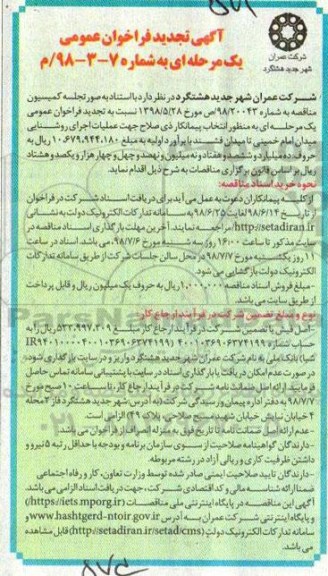 شرکت عمران
شهر جدید هشتگرد
آگهی تجدید فراخوان عمومی
یک مرحله ای به شماره ۷-۳-۹۸/م
شرکت عمران شهر جدید هشتگرد در نظر دارد با استناد به صورتجلسه کمیسیون
مناقصه به شماره ۹۸/۲۰۰۴۳/ص مورخ ۱۳۹۸/۵/۲۸ نسبت به تجدید فراخوان عمومی
یک مرحله ای به منظور انتخاب پیمانکار ذی صلاح جهت عملیات اجرای روشنایی
میدان امام خمینی تا میدان فشند با برآورد اولیه به مبلغ ۱۰.۶۷۹.۹۴۴.۱۸۰ ریال به
حروف ده میلیارد و ششصد و هفتاد و نه میلیون و نهصد و چهل و چهار هزار و یکصد و هشتاد
ریال بر اساس قانون برگزاری مناقصات به شرح ذیل اقدام نماید.
نحوه خرید اسناد مناقصه:
از کلیه پیمانکاران دعوت به عمل می آید برای دریافت اسناد شرکت در فراخوان
از تاریخ ۹۸/۶/۱۴ لغایت ۹۸/۶/۲۵ به سامانه تدارکات الکترونیک دولت به نشانی
http://setadiran.ir مراجعه نمایند. آخرین مهلت بارگذاری اسناد مناقصه در
سایت مذکور تا ساعت ۱۶:۰۰ روز سه شنبه مورخ ۹۸/۷/۶ می باشد. اسناد در ساعت
۱۱ روز یکشنبه مورخ ۹۸/۷/۷ در محل سالن جلسات شرکت از طریق سامانه تدارکات
الکترونیک دولت بازگشایی می شود.
-مبلغ فروش اسناد مناقصه ۱.۰۰۰.۰۰۰ ریال به حروف یک میلیون ریال و قابل پرداخت
از طریق سایت می باشد.
نوع و مبلغ تضمین شرکت در فرآیند ارجاع کار:
-اصل فیش یا تضمین شرکت در فرآیند ارجاع کار مبلغ ۵۳۳.۹۹۷.۳۰۹ ریال را به
حساب شماره ۴۰۰۱۰۳۶۹۰۶۳۷۴۱۹۹
شبا) بانک ملی به نام شرکت عمران شهر جدید هشتگرد واریز و در سایت بارگذاری شود.
در صورت عدم امکان دریافت یا بارگذاری اسناد در سایت با پشتیبانی سامانه تماس حاصل
فرمایید. ارائه اصل ضمانت نامه شرکت در فرآیند ارجاع کار، تا ساعت ۱۰ صبح مورخ
۹۸/۷/۷ به دفتر اداره پیمان و رسیدگی شرکت (به آدرس: شهر جدید هشتگرد فاز ۲ محله
۴ خیابان نیایش خیابان شهید مسیح صلاحی پلاک ۴۹) الزامی است.
-عدم ارائه اصل ضمانت نامه تا تاریخ فوق به منزله انصراف از فراخوان می باشد.
-دارندگان گواهینامه صلاحیت از سوی سازمان برنامه و بودجه با حداقل رتبه ۵ نیرو و
داشتن ظرفیت کاری و ریالی آزاد در رشته مربوطه.
-دارندگان تایید صلاحیت ایمنی صادر شده توسط وزارت تعاون، کار و رفاه اجتماعی
ضمنا ارائه شناسه ملی و کد اقتصادی شرکت، جهت دریافت اسناد الزامی می باشد.
آگهی این مناقصه در پایگاه اینترنتی ملی مناقصات (https://iets.mporg.ir/)
و پایگاه اینترنتی شرکت عمران به آدرس www.hashtgerd-ntoir.gov.ir و
سامانه تدارکات الکترونیک دولت (http://setadiran.ir/setad/cms) قابل مشاهده
می باشد.